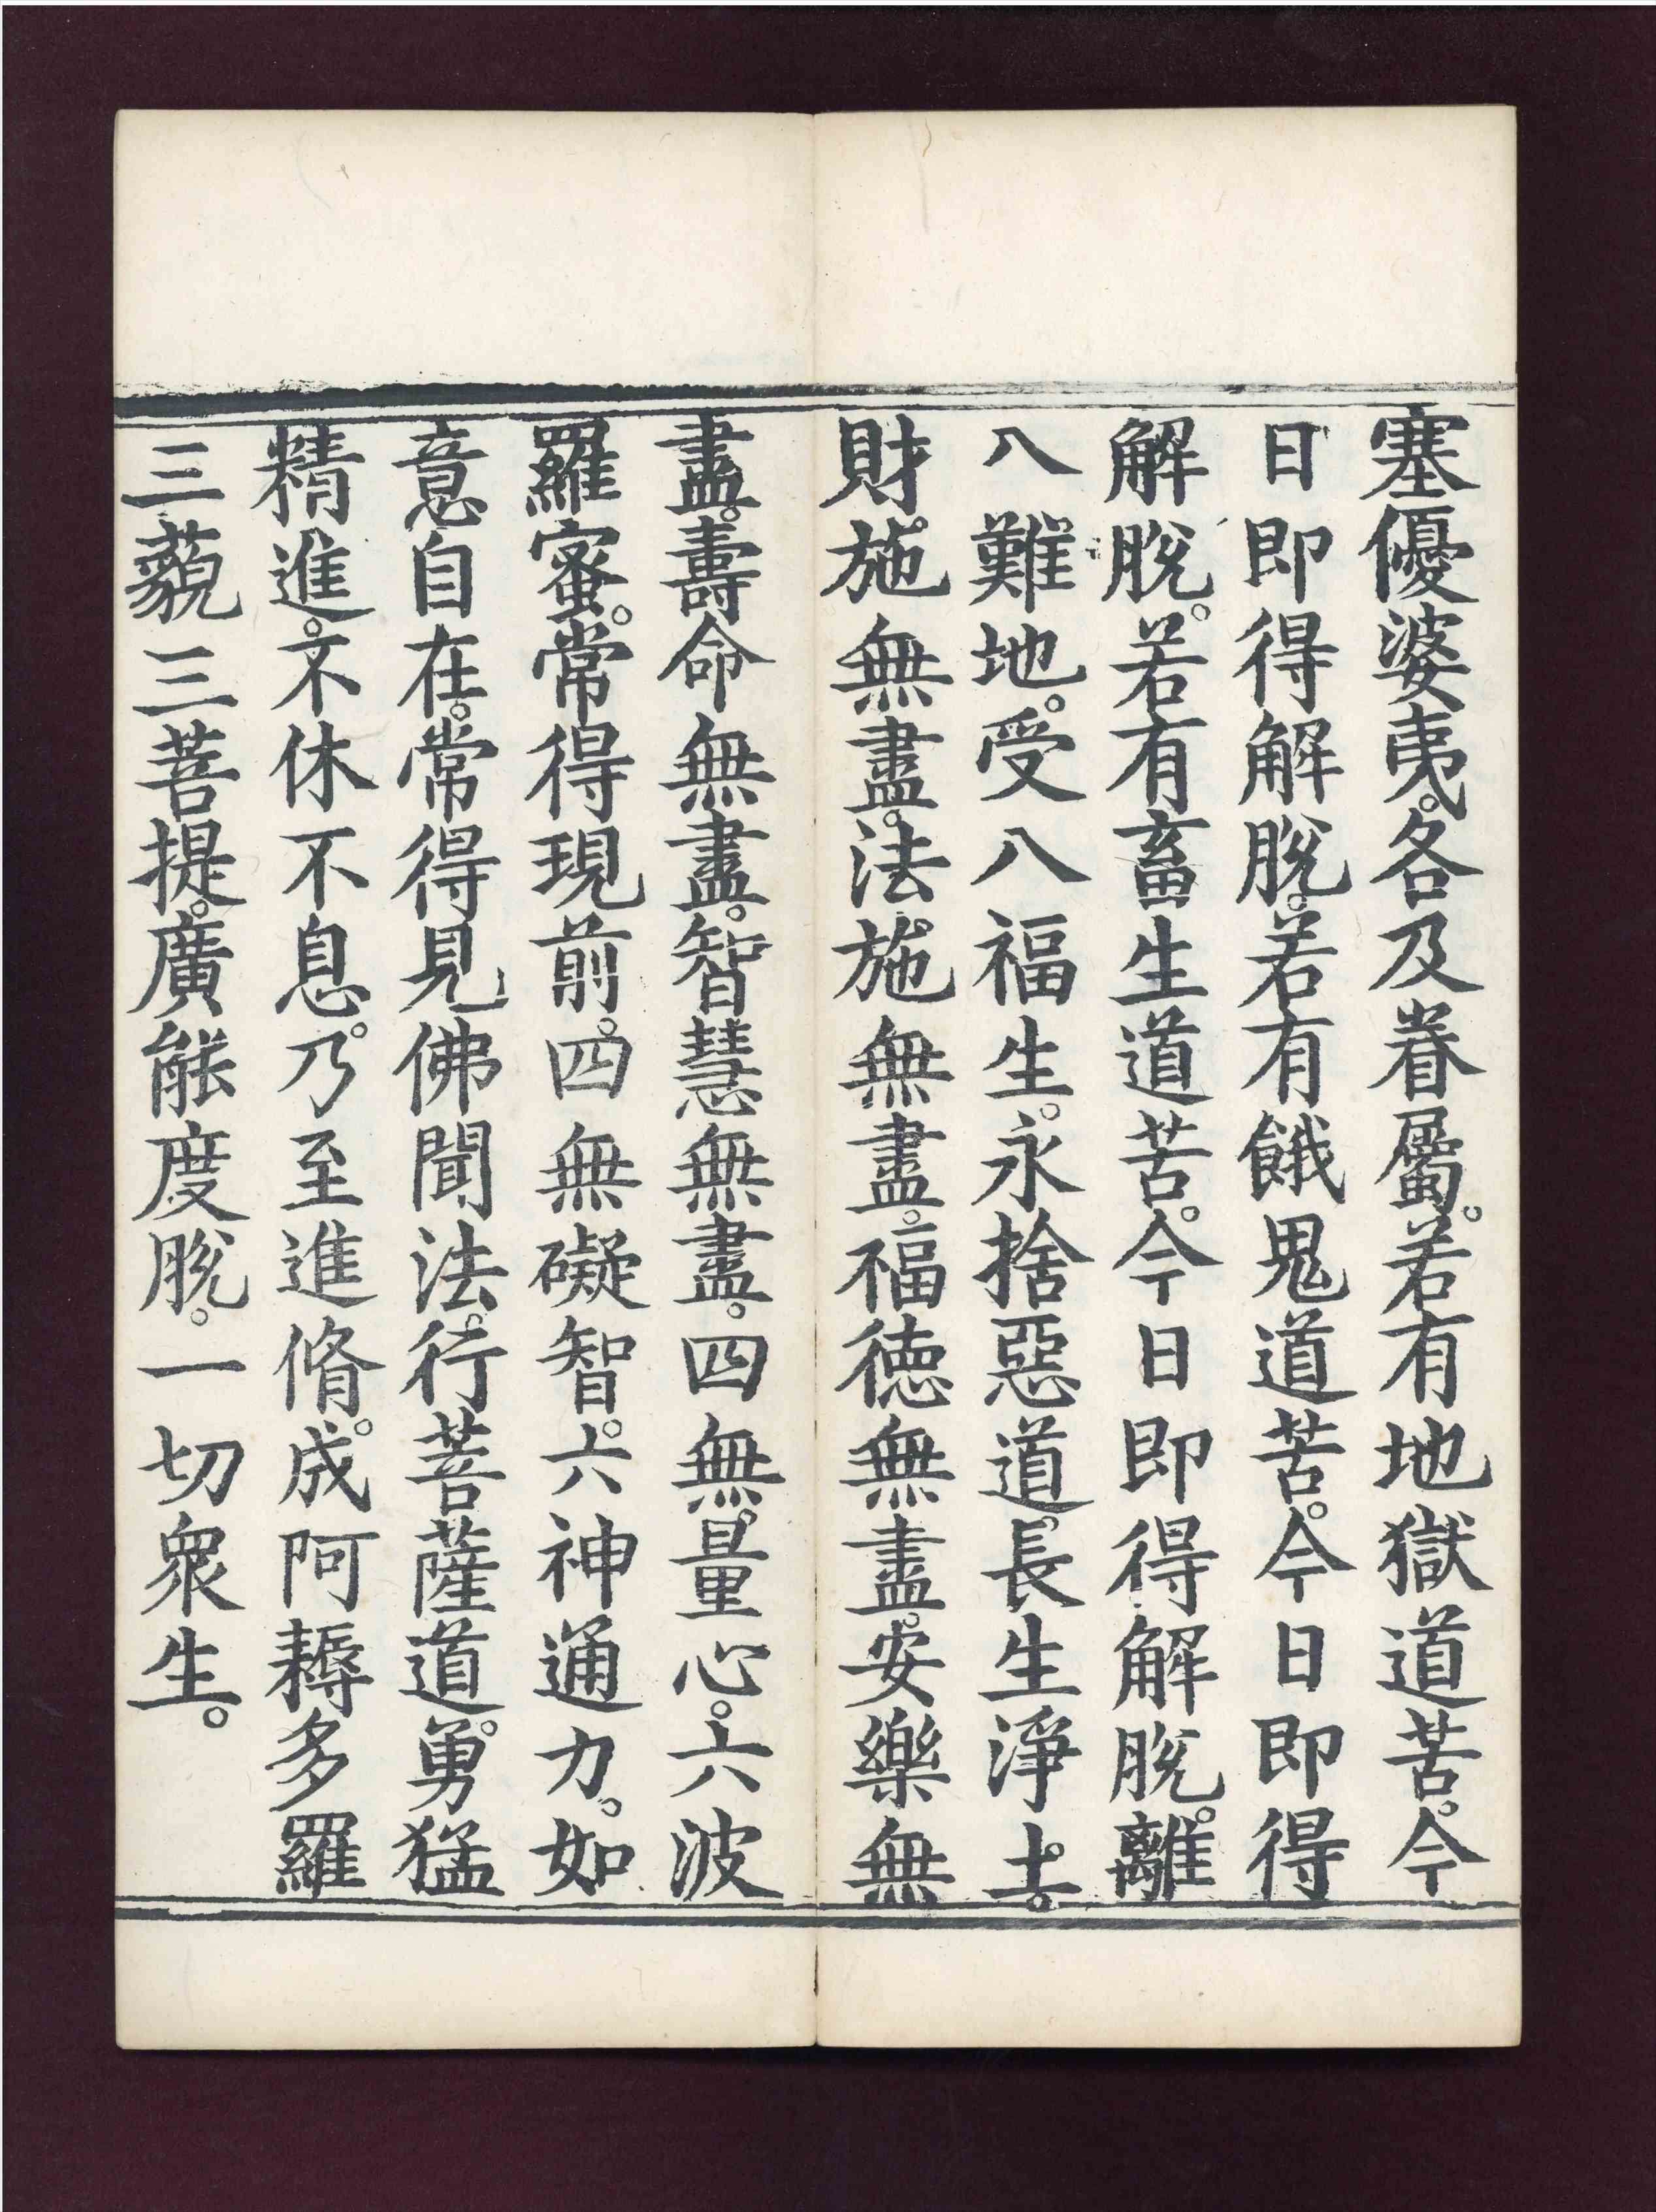 塞優婆夷。各及眷屬。若有地獄道苦。今
日即得解脫。若有餓鬼道苦。今日即得
解脫。若有畜生道苦。今日即得解脫。離
八難地。受八福生。永捨惡道。長生淨土。
財施無盡。法施無盡。福德無盡。安樂無
盡。壽命無盡。智慧無盡。四無量心。六波
羅蜜。常得現前。四無礙智。六神通力。如
意自在。常得見佛聞法。行菩薩道。勇猛
精進。不休不息。乃至進脩。成阿耨多羅
三藐三菩提。廣能度脫。一切眾生。